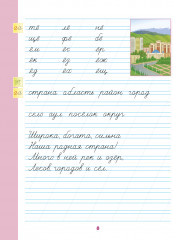 те ле пе
ще фе бе
ем ес ер
ек еу еж
ед ех ещ
страна область район город
село аул посёлок округ
Широка, богата, сильна
Наша родная страна!
Много в ней рек и озёр,
Лесов, городов и сёл.
6